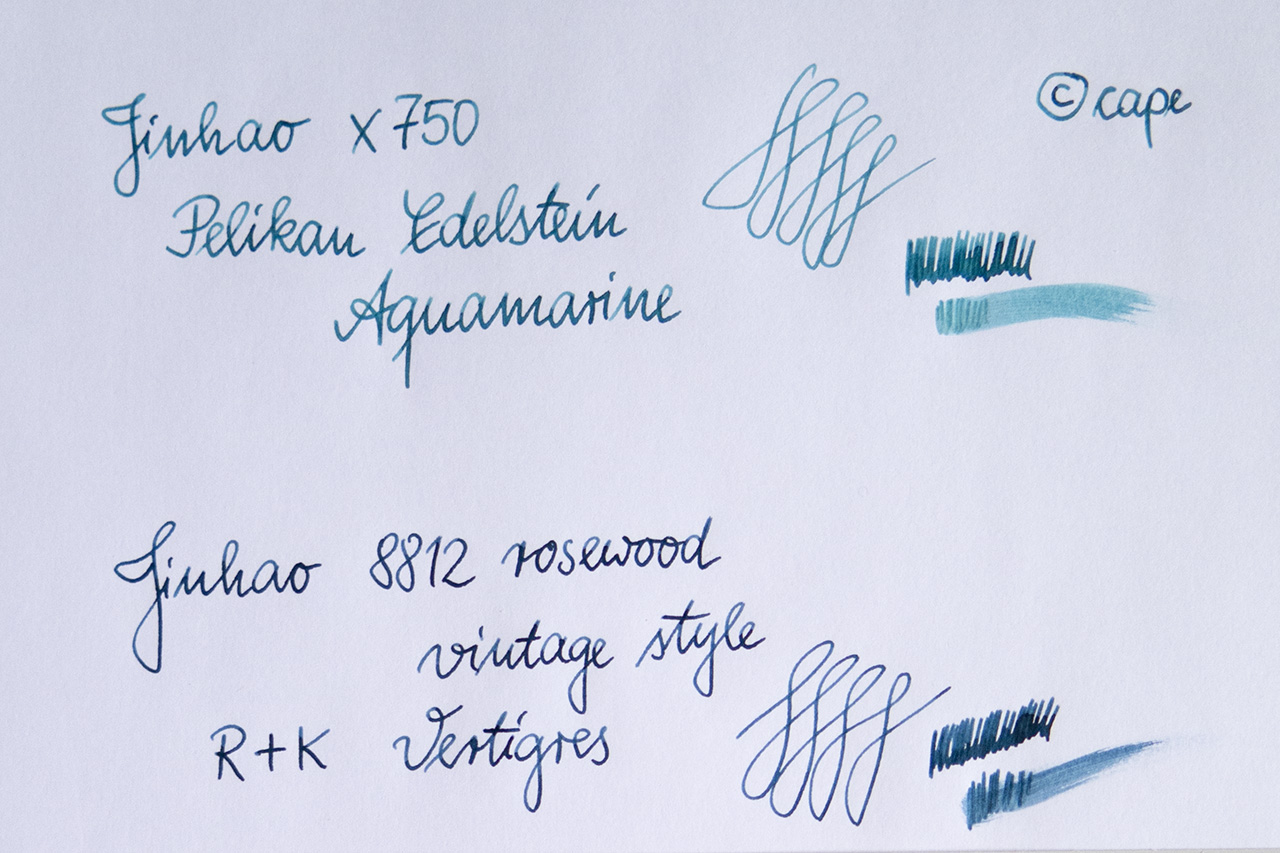 Jinhao x750
© cape
Pelikan Edelstein
Aquamarine
Jinhao 8812 rosewood
vintage style
R+K Vertigres